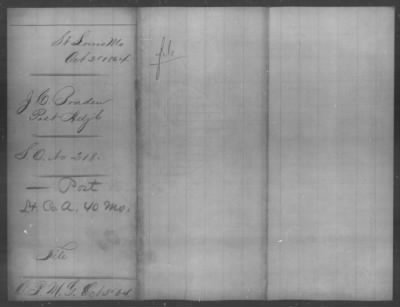 St Louis Mo
Oct 2d 1864
J. C.
Post Adjt
S. O. No 218.
— Post
Lt. Co A, 40 Mo.
File
O. P. M. G. Oct 64
file